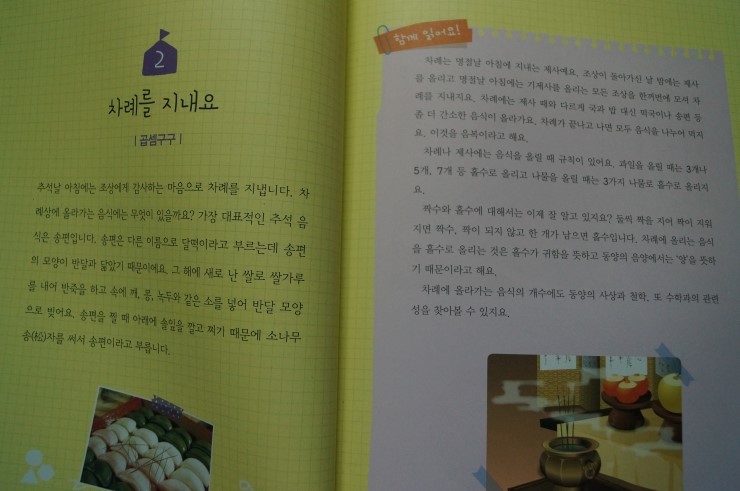 2
차례를 지내요
| 곱셈구구 |
추석날 아침에는 조상에게 감사하는 마음으로 차례를 지냅니다. 차
례상에 올라가는 음식에는 무엇이 있을까요? 가장 대표적인 추석 음
식은 송편입니다. 송편은 다른 이름으로 달떡이라고 부르는데 송편
의 모양이 반달과 닮았기 때문이에요. 그 해에 새로 난 쌀로 쌀가루
를 내어 반죽을 하고 속에 깨, 콩, 녹두와 같은 소를 넣어 반달 모양
으로 빚어요. 송편을 찔 때 아래에 솔잎을 깔고 찌기 때문에 소나무
송(松)자를 써서 송편이라고 부릅니다.
함께 읽어요!
차례는 명절날 아침에 지내는 제사예요. 조상이 돌아가신 날 밤에는 제사
를 올리고 명절날 아침에는 기제사를 올리는 모든 조상을 한꺼번에 모셔 차
례를 지내지요. 차례에는 제사 때와 다르게 국과 밥 대신 떡국이나 송편 등
좀 더 간소한 음식이 올라가요. 차례가 끝나고 나면 모두 음식을 나누어 먹지
요. 이것을 음복이라고 해요.
차례나 제사에는 음식을 올릴 때 규칙이 있어요. 과일을 올릴 때는 3개나
5개, 7개 등 홀수로 올리고 나물을 올릴 때는 3가지 나물로 홀수로 올리지
요.
짝수와 홀수에 대해서는 이제 잘 알고 있지요? 둘씩 짝을 지어 짝이 지워
지면 짝수, 짝이 되지 않고 한 개가 남으면 홀수입니다. 차례에 올리는 음식
을 홀수로 올리는 것은 홀수가 귀함을 뜻하고 동양의 음양에서는 '양'을 뜻하
기 때문이라고 해요.
차례에 올라가는 음식의 개수에도 동양의 사상과 철학, 또 수학과의 관련
성을 찾아볼 수 있지요.